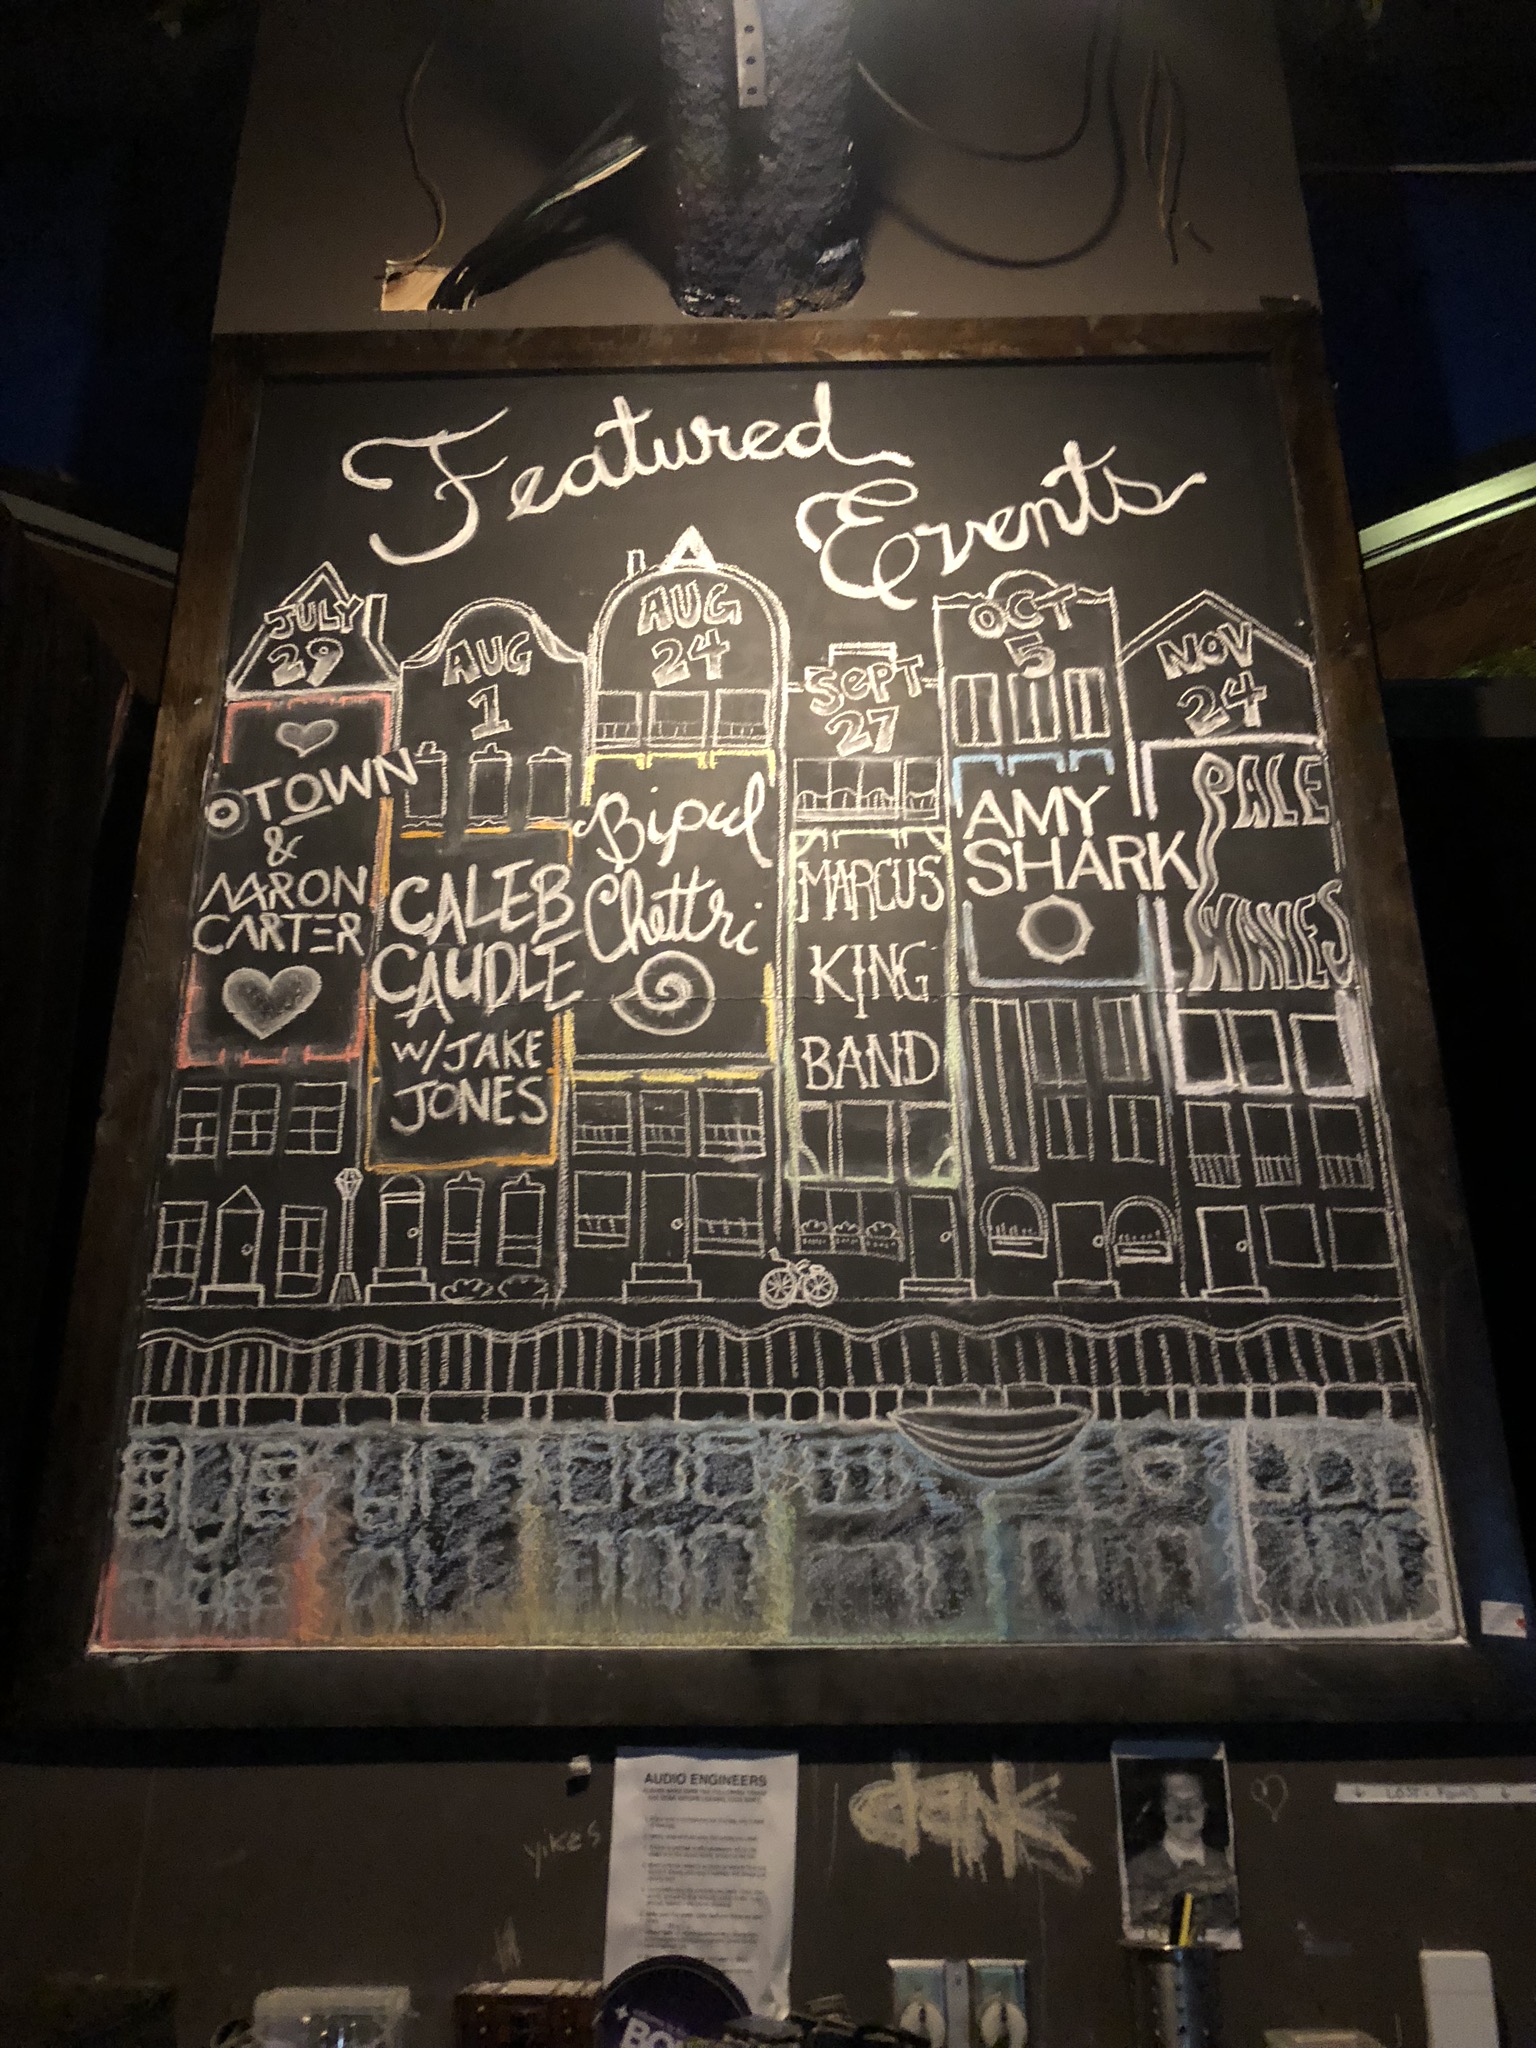 Featured
Events
JULY
29
OTOWN
&
AARON
CARTER
AUG
1
CALEB
CAUDLE
W/JAKE
JONES
AUG
24
Bipul
Chettri
SEPT
27
MARCUS
KING
BAND
OCT
5
AMY
SHARK
NOV
24
PALE
WAVES
AUDIO ENGINEERS
yikes
LOST + FOUND
BO